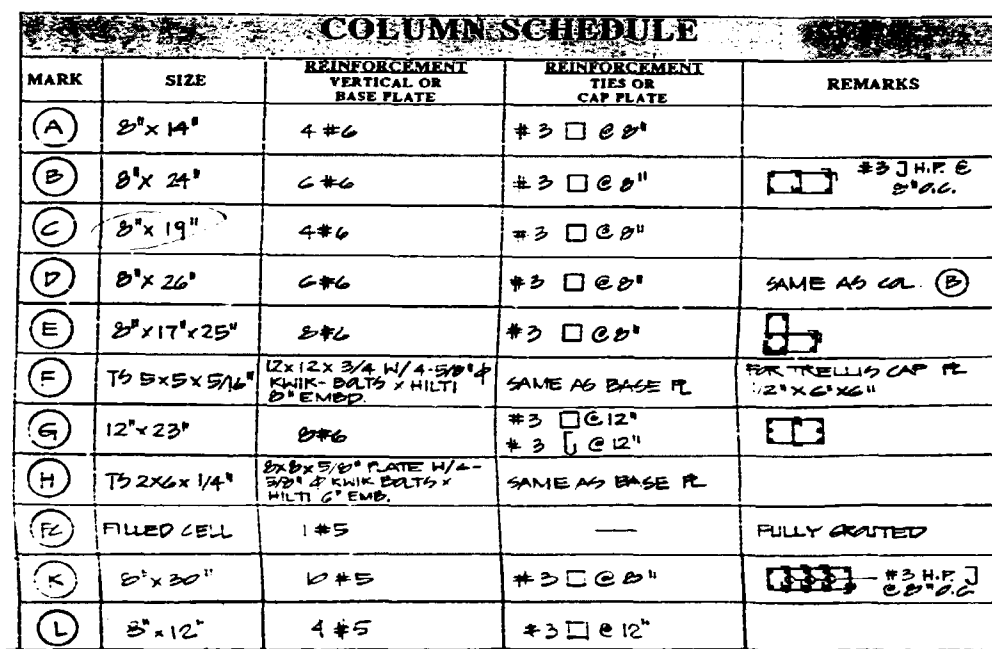 COLUMN SCHEDULE
MARK SIZE REINFORCEMENT VERTICAL OR BASE PLATE REINFORCEMENT TIES OR CAP PLATE REMARKS
A 8"x 14" 4 #6 #3 □ @ 8"
B 8"x 24" 6 #6 #3 □ @ 8" #3 H.P. @ 8" O.C.
C 8"x 19" 4#6 #3 □ @ 8"
D 8"x 26" 6#6 #3 □ @ 8" SAME AS COL. B
E 8"x17"x25" 8#6 #3 □ @ 8"
F TS 5x5x5/16" 12x12x 3/4 W/ 4-5/8" ϕ KWIK-BOLTS x HILTI 8" EMBD. SAME AS BASE PL FOR TRELLIS CAP PL 1/2"x6"x6"
G 12"x23" 8#6 #3 □ @ 12"
#3 [ @ 12"
H TS 2x6x 1/4" 8x8x5/8" PLATE W/4-5/8" ϕ KWIK BOLTS x HILTI 6" EMB. SAME AS BASE PL
FC FILLED CELL 1 #5 — FULLY GROUTED
K 8"x30" 10 #5 #3 □ @ 8" #3 H.P. @ 8" O.C
L 8"x12" 4 #5 #3 □ @ 12"